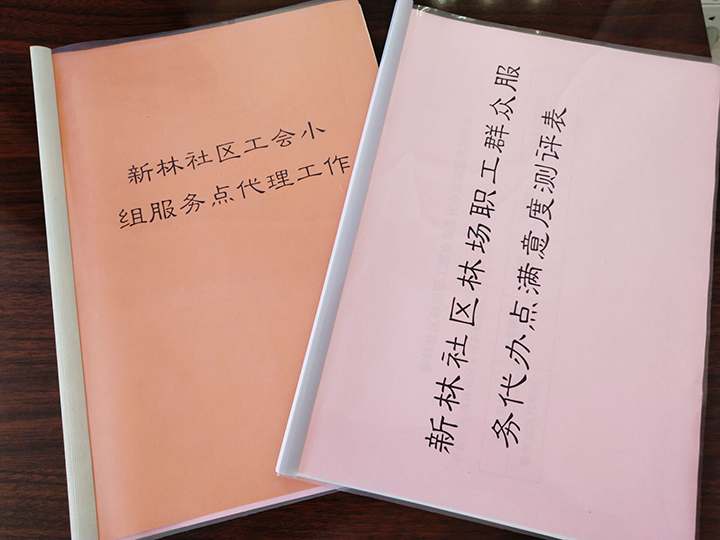 新林社区工会小
组服务点代理工作
新林社区林场职工群众服
务代办点满意度测评表